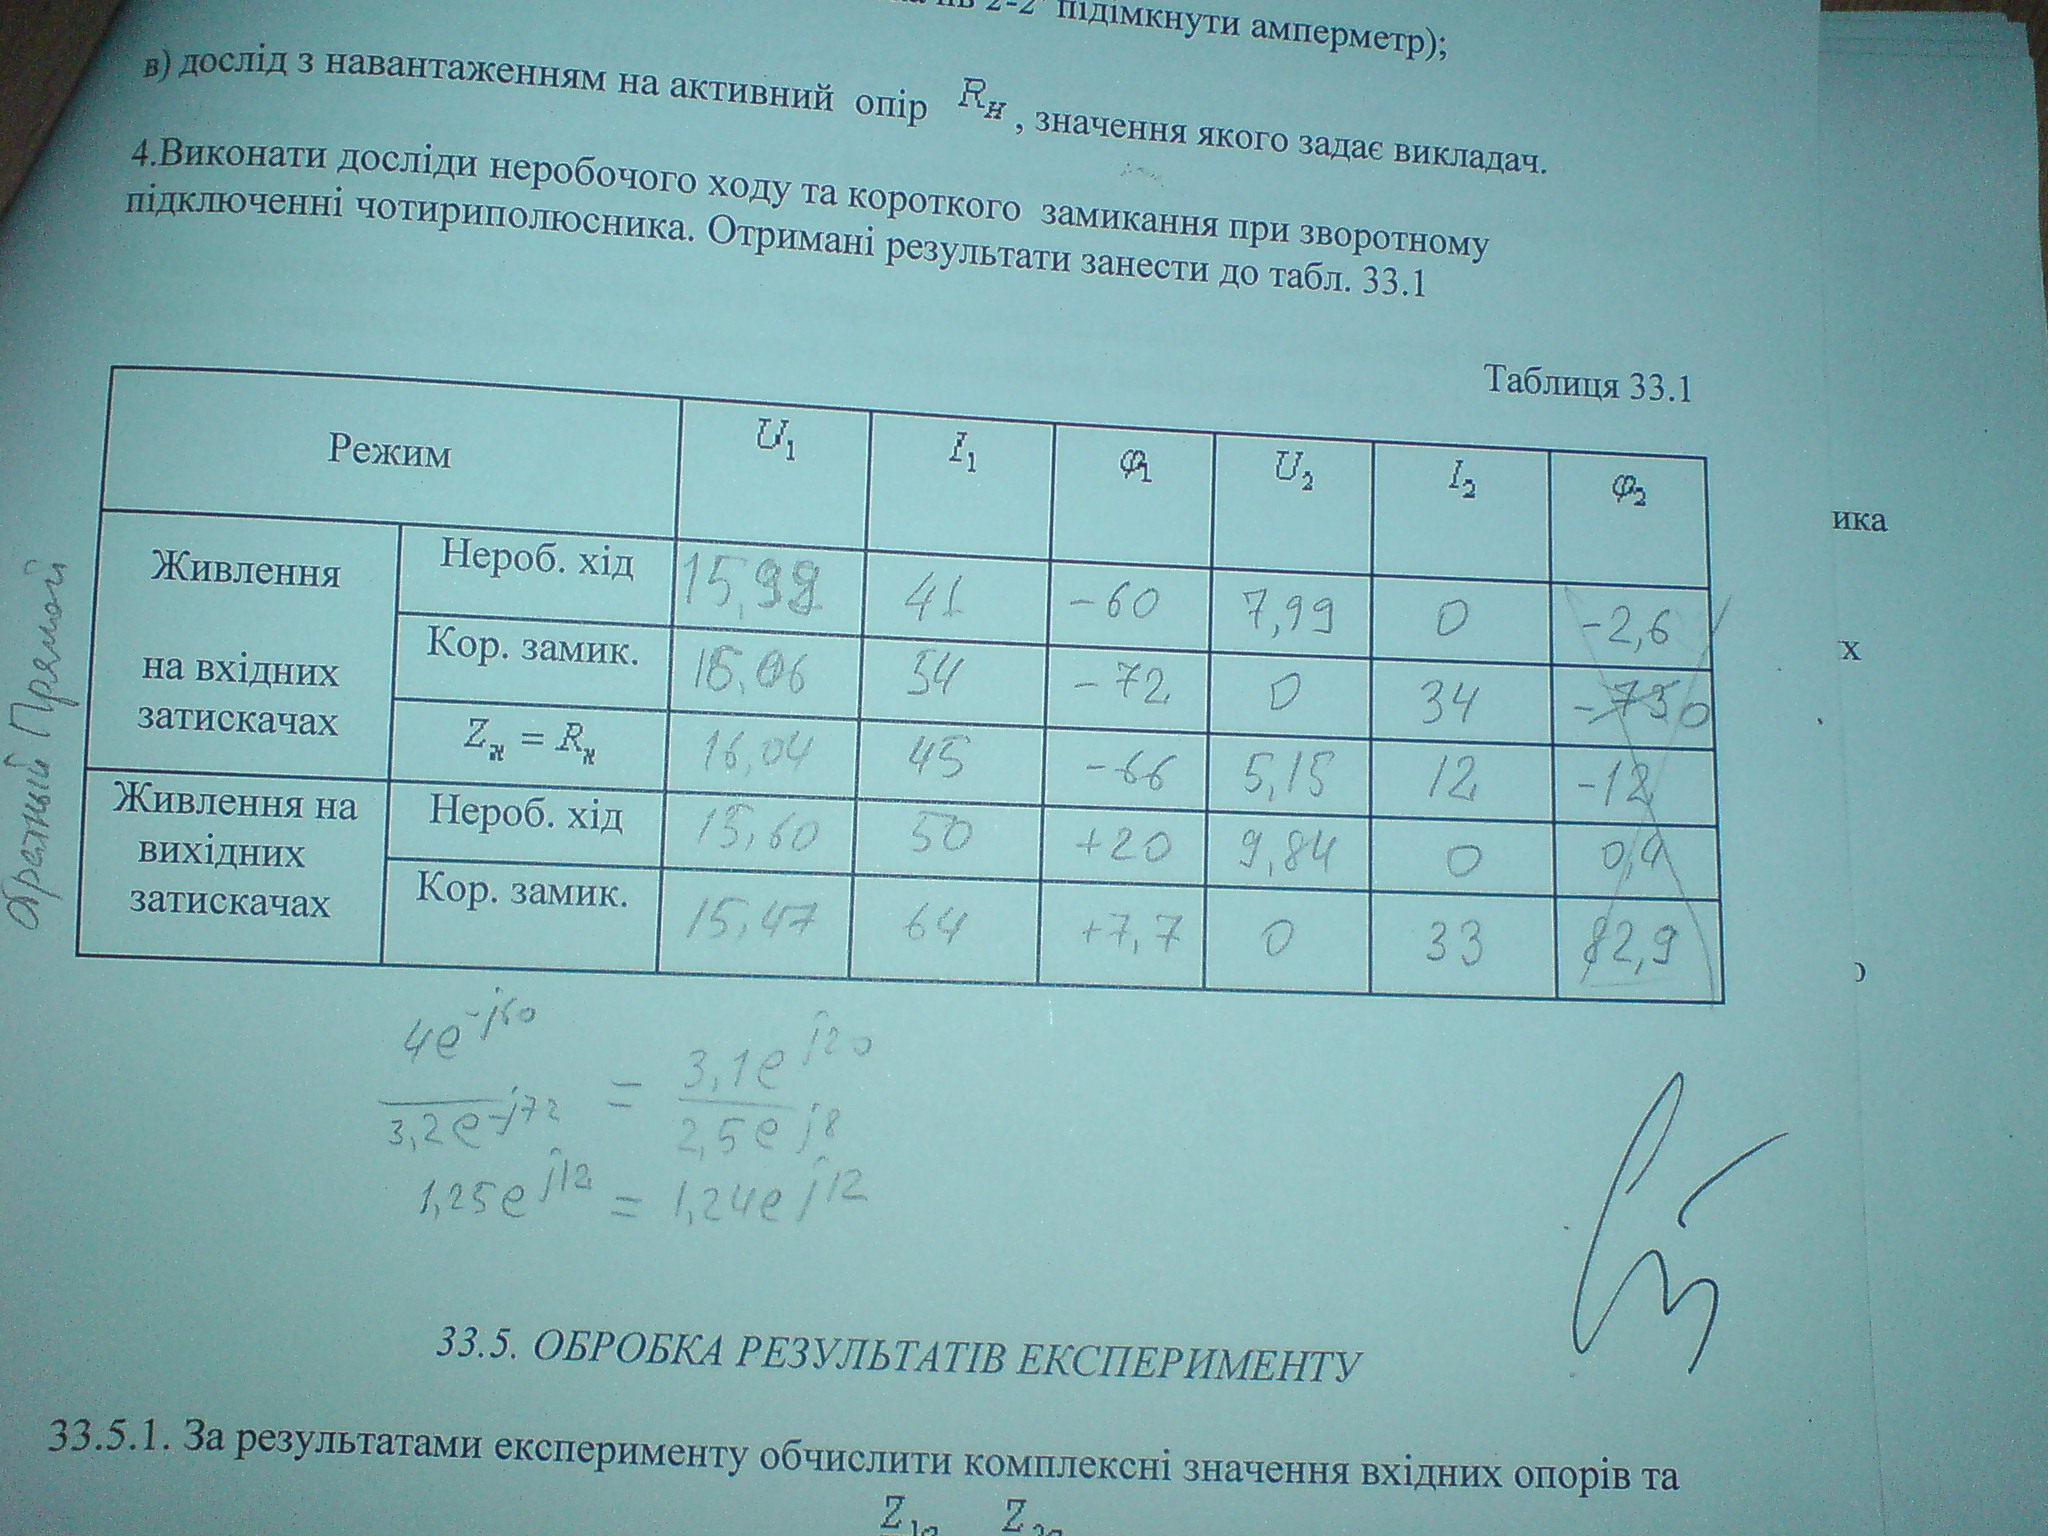 2-2 підімкнути амперметр);
в) дослід з навантаженням на активний опір Rн , значення якого задає викладач.
4.Виконати досліди неробочого ходу та короткого замикання при зворотному
підключенні чотириполюсника. Отримані результати занести до табл. 33.1
Таблиця 33.1
Режим U1 I1 φ1 U2 I2 φ2
Живлення на вхідних затискачах
Нероб. хід 15,99 41 -60 7,99 0 -2,6
Кор. замик. 16,06 54 -72 0 34 -73 0
Zн = Rн 16,04 45 -66 5,15 12 -12
Живлення на вихідних затискачах
Нероб. хід 15,60 50 +20 9,84 0 0,4
Кор. замик. 15,47 64 +7,7 0 33 82,9
Обратный Прямой
4e^-j60 / 3,2e^-j72 = 3,1e^j20 / 2,5e^j8
1,25e^j12 = 1,24e^j12
33.5. ОБРОБКА РЕЗУЛЬТАТІВ ЕКСПЕРИМЕНТУ
33.5.1. За результатами експерименту обчислити комплексні значення вхідних опорів та
ика
х